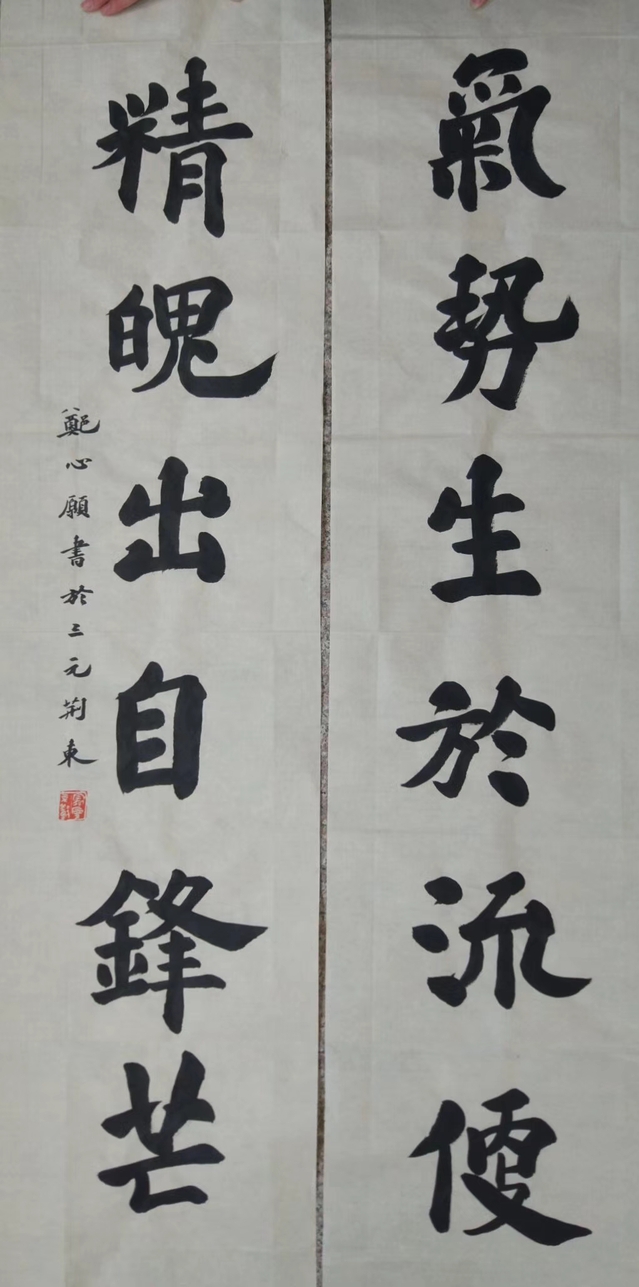 氣勢生於流便
精魄出自鋒芒
鄭心願書於三元荊東